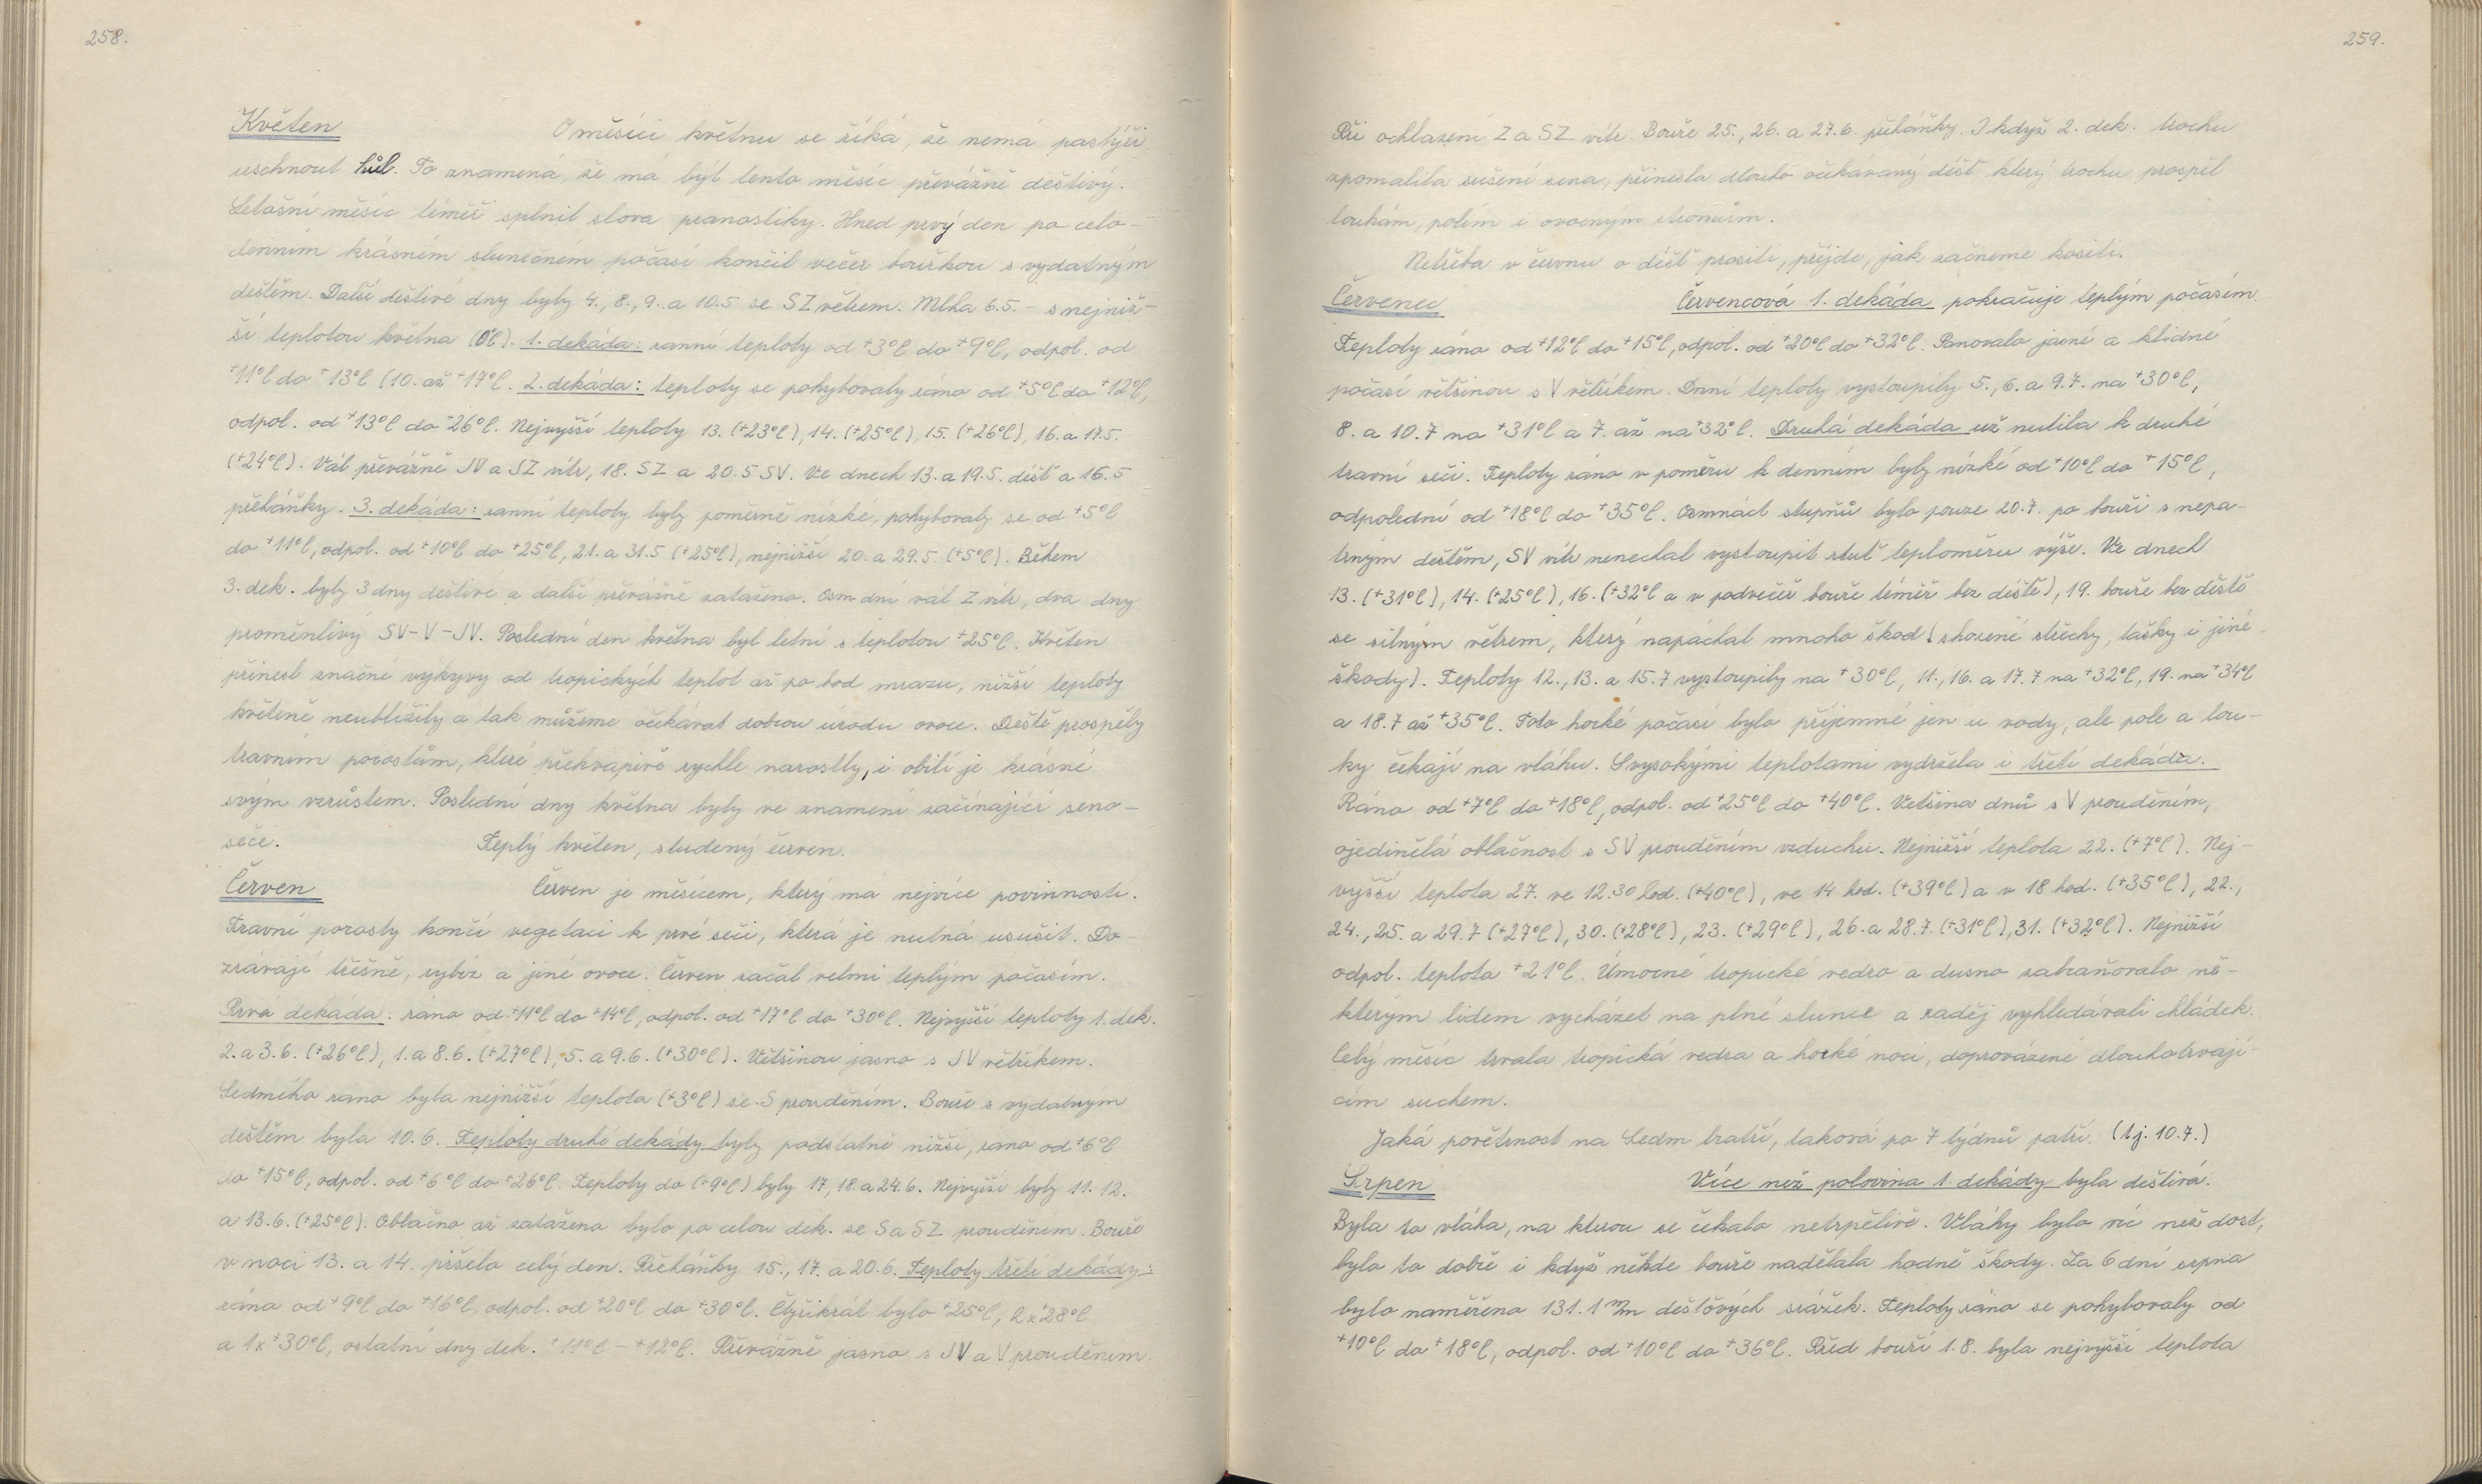 258.
Květen O měsíci květnu se říká, že nemá pastýři
uschnout hůl. To znamená, že má být tento měsíc převážně deštivý.
Letošní měsíc téměř splnil slova pranostiky. Hned prvý den po celo-
denním krásném slunečném počasí končil večer bouřkou s vydatným
deštěm. Další deštivé dny byly 4., 8., 9. a 10.5 se SZ větrem. Mlha 6.5. - s nejniž-
ší teplotou května (0°C). 1. dekáda: ranní teploty od +3°C do +9°C, odpol. od
+11°C do +13°C (10. až +17°C. 2. dekáda: teploty se pohybovaly ráno od +5°C do +12°C,
odpol. od +13°C do +26°C. Nejvyšší teploty 13. (+23°C), 14. (+25°C), 15. (+26°C), 16. a 17.5.
(+24°C). Vál převážně JV a JZ vítr, 18. SZ a 20.5 SV. Ve dnech 13. a 19.5. déšť a 16.5
přeháňky. 3. dekáda: ranní teploty byly poměrně nízké, pohybovaly se od +5°C
do +11°C, odpol. od +10°C do +25°C, 21. a 31.5 (+25°C), nejnižší 20. a 29.5. (+5°C). Během
3. dek. byly 3 dny deštivé a další převážně zataženo. Osm dní vál Z vítr, dva dny
proměnlivý SV-V-JV. Poslední den května byl letní s teplotou +25°C. Květen
přinesl značné výkyvy od tropických teplot až po bod mrazu, nižší teploty
květeně neublížily a tak můžeme očekávat dobrou úrodu ovoce. Deště prospěly
travním porostům, které překvapivě rychle narostly, i obilí je krásné
svým vzrůstem. Poslední dny května byly ve znamení začínající seno-
seče. Teplý květen, studený červen.
Červen Červen je měsícem, který má nejvíce povinností.
Travní porosty končí vegetaci k prvé seči, která je nutná usušit. Do-
zrávají třešně, rybíz a jiné ovoce. Červen začal velmi teplým počasím.
Prvá dekáda: ráno od +11°C do +14°C, odpol. od +17°C do +30°C. Nejvyšší teploty 1. dek.
2. a 3.6. (+26°C), 1. a 8.6. (+27°C), 5. a 9.6. (+30°C). Většinou jasno s JV větříkem.
Sedmého ráno byla nejnižší teplota (+3°C) se S prouděním. Bouře s vydatným
deštěm byla 10.6. Teploty druhé dekády byly podstatně nižší, ráno od +6°C
do +15°C, odpol. od +6°C do +26°C. Teploty do (+9°C) byly 17, 18. a 24.6. Nejvyšší byly 11. 12.
a 13.6. (+25°C). Oblačno až zataženo bylo po celou dek. se S a SZ prouděním. Bouře
v noci 13. a 14. pršelo celý den. Přeháňky 15., 17. a 20.6. Teploty třetí dekády:
rána od +9°C do +16°C, odpol. od +20°C do +30°C. Čtyřikrát bylo +25°C, 2x +28°C
a 1x +30°C, ostatní dny dek. +11°C - +12°C. Převážně jasno s JV a V prouděním.
259.
Při ochlazení Z a SZ vítr. Bouře 25., 26. a 27.6. přeháňky. I když 2. dek. trochu
zpomalila sušení sena, přinesla dlouho očekávaný déšť, který trochu prospěl
loukám, polím i ovocným stromům.
Netřeba v červnu o déšť prositi, přijde, jak začneme kositi.
Červenec Červencová 1. dekáda pokračuje teplým počasím.
Teploty rána od +12°C do +15°C, odpol. od +20°C do +32°C. Panovalo jasné a klidné
počasí většinou s V větříkem. Dnní teploty vystoupily 5., 6. a 9.7. na +30°C,
8. a 10.7 na +31°C a 7. až na +32°C. Druhá dekáda už nutila k druhé
travní seči. Teploty rána v poměru k denním byly nízké od +10°C do +15°C,
odpolední od +18°C do +35°C. Osmnáct stupňů bylo pouze 20.7. po bouři s nepa-
trným deštěm, SV vítr nenechal vystoupit rtuť teploměru výše. Ve dnech
13. (+31°C), 14. (+25°C), 16. (+32°C a v podvečer bouře téměř bez deště), 19. bouře bez deště
se silným větrem, který napáchal mnoho škod (shozené střechy, tašky i jiné
škody). Teploty 12., 13. a 15.7 vystoupily na +30°C, 11., 16. a 17.7 na +32°C, 19. na +34°C
a 18.7 až +35°C. Toto horké počasí bylo příjemné jen u vody, ale pole a lou-
ky čekají na vláhu. S vysokými teplotami vydržela i třetí dekáda.
Ráno od +7°C do +18°C, odpol. od +25°C do +40°C. Většina dnů s V prouděním,
ojedinělá oblačnost s SV prouděním vzduchu. Nejnižší teplota 22. (+7°C). Nej-
vyšší teplota 27. ve 12.30 hod. (+40°C), ve 14 hod. (+39°C) a v 18 hod. (+35°C), 22.,
24., 25. a 29.7 (+27°C), 30. (+28°C), 23. (+29°C), 26. a 28.7. (+31°C), 31. (+32°C). Nejnižší
odpol. teplota +21°C. Úmorné tropické vedro a dusno zabraňovalo ně-
kterým lidem vycházet na plné slunce a raděj vyhledávali chládek.
Celý měsíc trvala tropická vedra a horké noci, doprovázené dlouhotrvají-
cím suchem.
Jaká povětrnost na Sedm bratří, taková po 7 týdnů patří. (tj. 10.7.)
Srpen Více než polovina 1. dekády byla deštivá.
Byla to vláha, na kterou se čekalo netrpělivě. Vláhy bylo víc než dost,
bylo to dobře i když někde bouře nadělala hodně škody. Za 6 dní srpna
bylo naměřeno 131.1 m/m dešťových srážek. Teploty ráno se pohybovaly od
+10°C do +18°C, odpol. od +10°C do +36°C. Před bouří 1.8. byla nejvyšší teplota